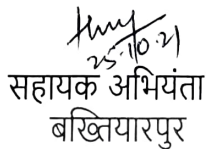 25.10.21
सहायक अभियंता
बख्तियारपुर